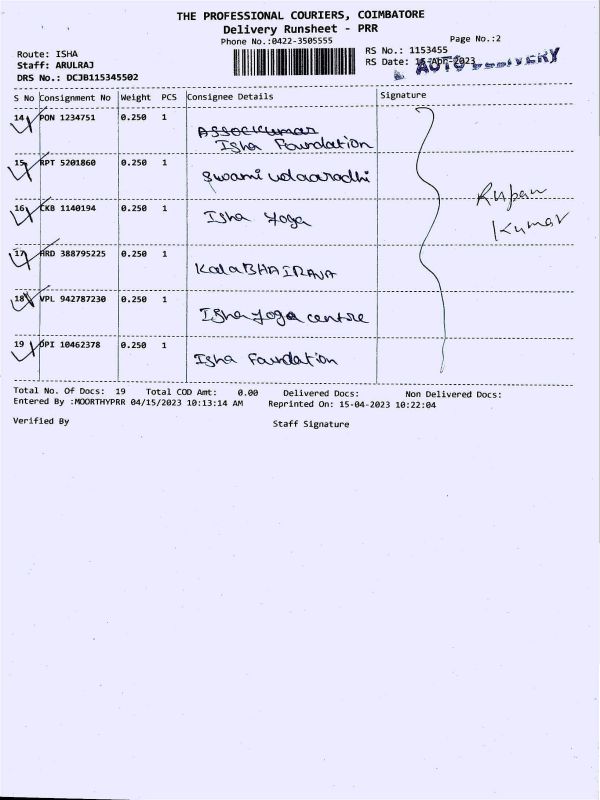 THE PROFESSIONAL COURIERS, COIMBATORE
Delivery Runsheet - PRR
Phone No.:0422-3505555
Page No.:2
Route: ISHA
RS No.: 1153455
Staff: ARULRAJ
RS Date: 15-Apr-2023
AUTO DELIVERY
DRS No.: DCJB115345502
S No Consignment No Weight PCS Consignee Details Signature
14 PON 1234751 0.250 1
Isha Foundation
15 RPT 5201860 0.250 1
Swami udaaradhi
16 CKB 1140194 0.250 1
Isha Yoga
Rupan
Kumar
17 HRD 388795225 0.250 1
KalaBHAIRAVA
18 VPL 942787230 0.250 1
Isha Yoga centre
19 OPI 10462378 0.250 1
Isha Foundation
Total No. Of Docs: 19 Total COD Amt: 0.00 Delivered Docs: Non Delivered Docs:
Entered By :MOORTHYPRR 04/15/2023 10:13:14 AM Reprinted On: 15-04-2023 10:22:04
Verified By Staff Signature